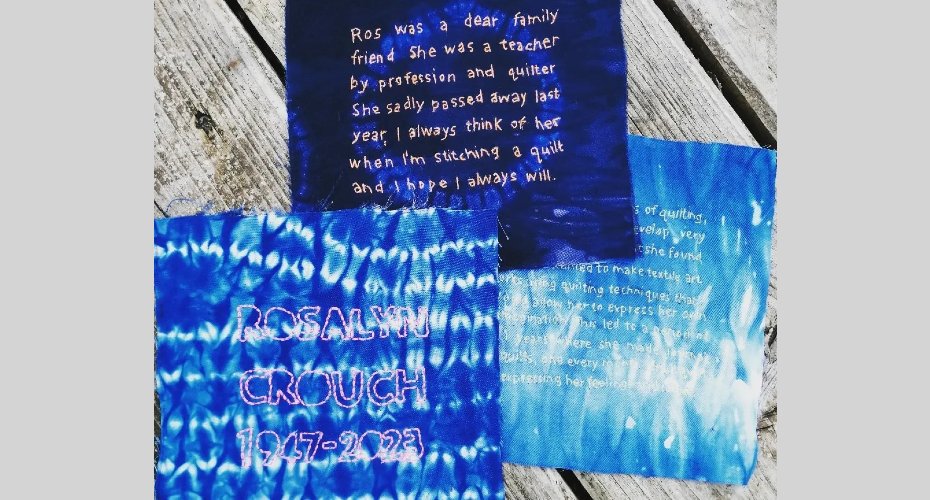 Ros was a dear family
friend She was a teacher
by profession and quilter
She sadly passed away last
year, I always think of her
when I'm stitching a quilt
and I hope I always will.
ROSALYN
CROUCH
1947-2023
of quilting,
very
she found
to make textile art
using quilting techniques that
allow her to express her own
This led to a
where she made
every
expressing her feelings